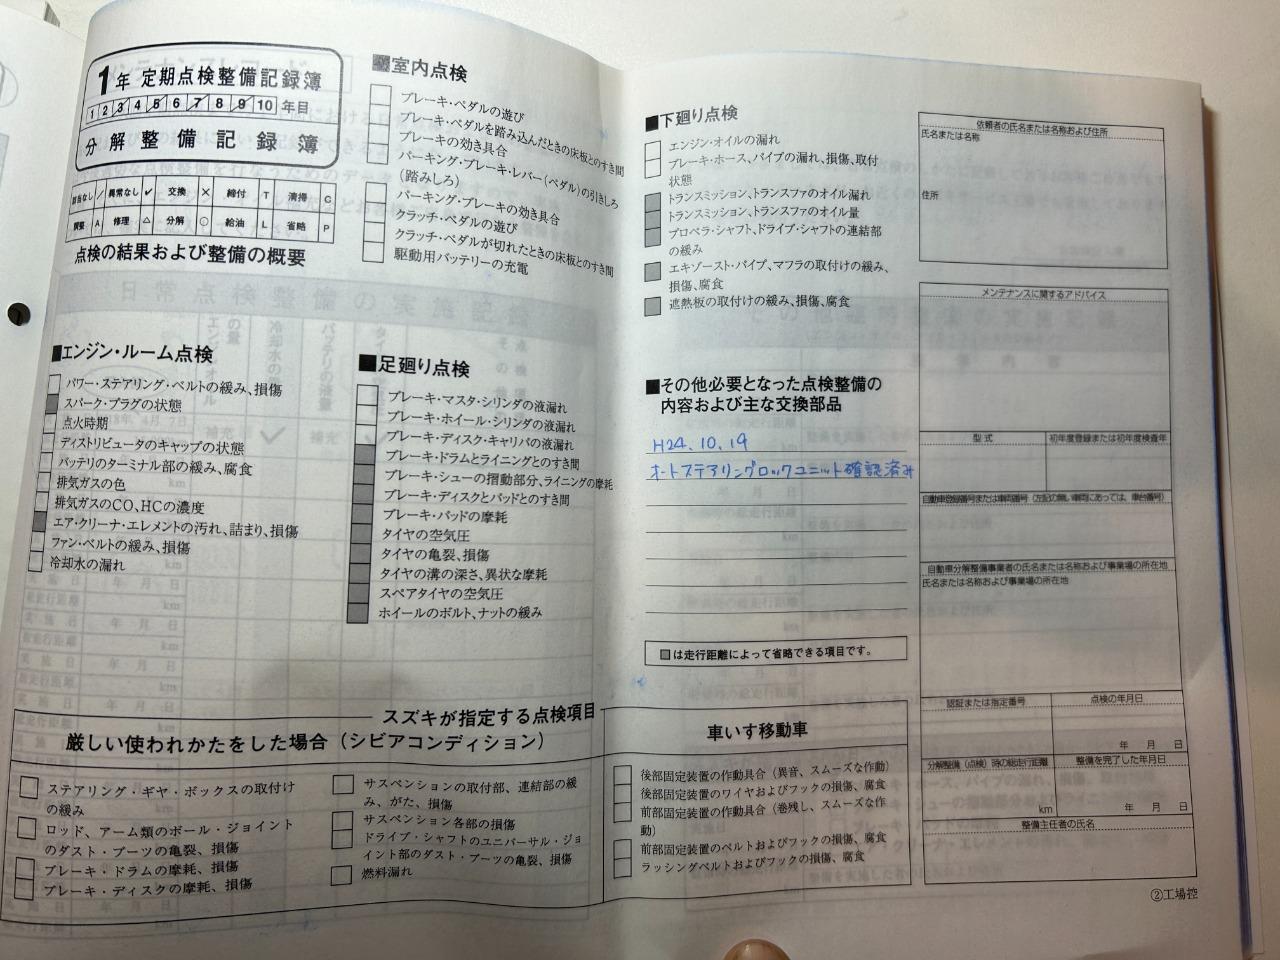 1年 定期点検整備記録簿
1 2 3 4 5 6 7 8 9 10 年目
分解整備記録簿
該当なし / 異常なし ✓ 交換 × 締付 T 清掃 C
調整 A 修理 △ 分解 ○ 給油 L 省略 P
点検の結果および整備の概要
■エンジン・ルーム点検
パワー・ステアリング・ベルトの緩み、損傷
スパーク・プラグの状態
点火時期
ディストリビュータのキャップの状態
バッテリのターミナル部の緩み、腐食
排気ガスの色
排気ガスのCO、HCの濃度
エア・クリーナ・エレメントの汚れ、詰まり、損傷
ファン・ベルトの緩み、損傷
冷却水の漏れ
■室内点検
ブレーキ・ペダルの遊び
ブレーキ・ペダルを踏み込んだときの床板とのすき間
ブレーキの効き具合
パーキング・ブレーキ・レバー(ペダル)の引きしろ
(踏みしろ)
パーキング・ブレーキの効き具合
クラッチ・ペダルの遊び
クラッチ・ペダルが切れたときの床板とのすき間
駆動用バッテリーの充電
■足廻り点検
ブレーキ・マスタ・シリンダの液漏れ
ブレーキ・ホイール・シリンダの液漏れ
ブレーキ・ディスク・キャリパの液漏れ
ブレーキ・ドラムとライニングとのすき間
ブレーキ・シューの摺動部分、ライニングの摩耗
ブレーキ・ディスクとパッドとのすき間
ブレーキ・パッドの摩耗
タイヤの空気圧
タイヤの亀裂、損傷
タイヤの溝の深さ、異状な摩耗
スペアタイヤの空気圧
ホイールのボルト、ナットの緩み
■下廻り点検
エンジン・オイルの漏れ
ブレーキ・ホース、パイプの漏れ、損傷、取付
状態
トランスミッション、トランスファのオイル漏れ
トランスミッション、トランスファのオイル量
プロペラ・シャフト、ドライブ・シャフトの連結部
の緩み
エキゾースト・パイプ、マフラの取付けの緩み、
損傷、腐食
遮熱板の取付けの緩み、損傷、腐食
■その他必要となった点検整備の
内容および主な交換部品
H24.10.19
オートステアリングロックユニット確認済み
■は走行距離によって省略できる項目です。
依頼者の氏名または名称および住所
氏名または名称
住所
メンテナンスに関するアドバイス
型式 初年度登録または初年度検査年
自動車登録番号または車両番号(左記の無い車両にあっては、車台番号)
自動車分解整備事業者の氏名または名称および事業場の所在地
氏名または名称および事業場の所在地
認証または指定番号 点検の年月日
年 月 日
分解整備(点検)時の総走行距離 整備を完了した年月日
km 年 月 日
整備主任者の氏名
②工場控
スズキが指定する点検項目
厳しい使われかたをした場合(シビアコンディション)
ステアリング・ギヤ・ボックスの取付け
の緩み
ロッド、アーム類のボール・ジョイント
のダスト・ブーツの亀裂、損傷
ブレーキ・ドラムの摩耗、損傷
ブレーキ・ディスクの摩耗、損傷
サスペンションの取付部、連結部の緩
み、がた、損傷
サスペンション各部の損傷
ドライブ・シャフトのユニバーサル・ジョ
イント部のダスト・ブーツの亀裂、損傷
燃料漏れ
車いす移動車
後部固定装置の作動具合(異音、スムーズな作動)
後部固定装置のワイヤおよびフックの損傷、腐食
前部固定装置の作動具合(巻残し、スムーズな作
動)
前部固定装置のベルトおよびフックの損傷、腐食
ラッシングベルトおよびフックの損傷、腐食